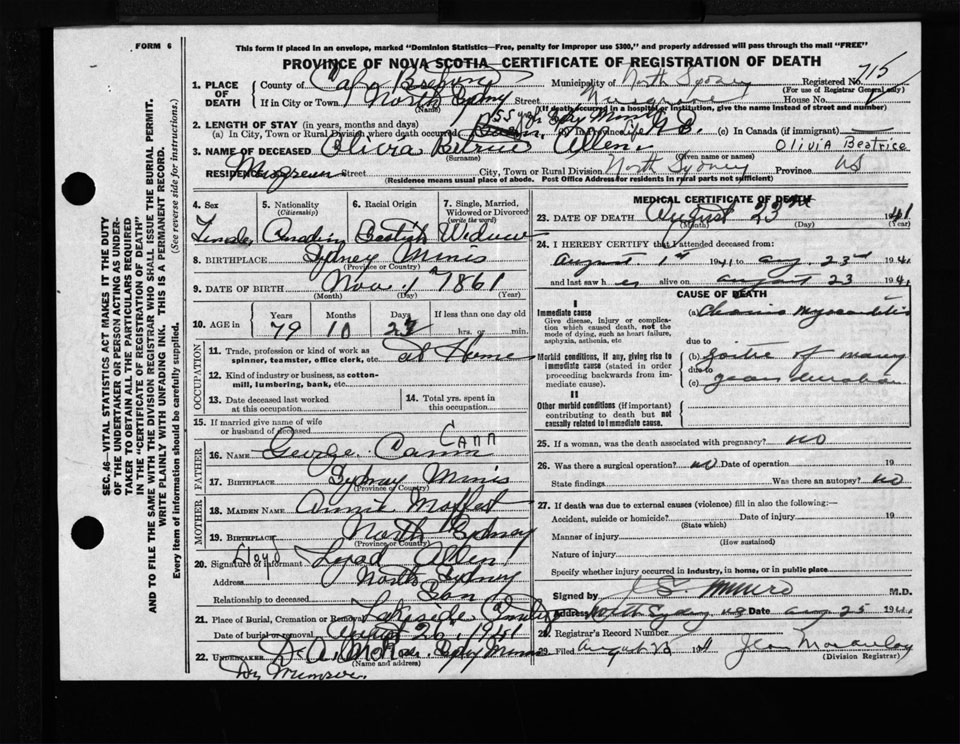 FORM 6
This form if placed in an envelope, marked "Dominion Statistics—Free, penalty for improper use $300," and properly addressed will pass through the mail "FREE"
PROVINCE OF NOVA SCOTIA CERTIFICATE OF REGISTRATION OF DEATH
SEC. 46—VITAL STATISTICS ACT MAKES IT THE DUTY
OF THE UNDERTAKER OR PERSON ACTING AS UNDER-
TAKER TO OBTAIN ALL THE PARTICULARS REQUIRED
IN THE "CERTIFICATE OF REGISTRATION OF DEATH"
AND TO FILE THE SAME WITH THE DIVISION REGISTRAR WHO SHALL ISSUE THE BURIAL PERMIT.
WRITE PLAINLY WITH UNFADING INK. THIS IS A PERMANENT RECORD.
Every item of information should be carefully supplied. (See reverse side for instructions.)
1. PLACE OF DEATH County of Cape Breton Municipality of North Sydney Registered No. 715
(For use of Registrar General only)
If in City or Town North Sydney Street House No.
(Name) (If death occurred in a hospital or institution, give the name instead of street and number)
2. LENGTH OF STAY (in years, months and days)
(a) In City, Town or Rural Division where death occurred 55 yrs (b) In Province Life (c) In Canada (if immigrant)
3. NAME OF DECEASED Olivia Allen Olivia Beatrice
(Surname) (Given name or names)
RESIDENCE Street City, Town or Rural Division North Sydney Province NS
(Residence means usual place of abode. Post Office Address for residents in rural parts not sufficient)
4. Sex Female
5. Nationality (Citizenship) Canadian
6. Racial Origin
7. Single, Married, Widowed or Divorced (write the word) Widow
8. BIRTHPLACE Sydney Mines
(Province or Country)
9. DATE OF BIRTH Nov. 1 1861
(Month) (Day) (Year)
10. AGE in Years Months Days If less than one day old
79 10 hrs. or min.
OCCUPATION
11. Trade, profession or kind of work as spinner, teamster, office clerk, etc. at Home
12. Kind of industry or business, as cotton-mill, lumbering, bank, etc.
13. Date deceased last worked at this occupation
14. Total yrs. spent in this occupation
15. If married give name of wife or husband of deceased
FATHER
16. NAME George Cann CANN
17. BIRTHPLACE Sydney Mines
(Province or Country)
MOTHER
18. MAIDEN NAME Annie
19. BIRTHPLACE North Sydney
(Province or Country)
20. Signature of informant Lloyd Allen
Address North Sydney
Relationship to deceased Son
21. Place of Burial, Cremation or Removal Lakeside
Date of burial or removal August 1941
22. UNDERTAKER
(Name and address)
MEDICAL CERTIFICATE OF DEATH
23. DATE OF DEATH August 23rd 1941
(Month) (Day) (Year)
24. I HEREBY CERTIFY that I attended deceased from:
August 1st 1941 to Aug. 23rd 1941
and last saw her alive on August 23 1941
CAUSE OF DEATH
I
Immediate cause
Give disease, injury or complication which caused death, not the mode of dying, such as heart failure, asphyxia, asthenia, etc
(a) Chronic Myocarditis
due to
Morbid conditions, if any, giving rise to immediate cause (stated in order proceeding backwards from immediate cause).
(b) Goitre of many
due to
(c) years duration
II
Other morbid conditions (if important) contributing to death but not causally related to immediate cause.
25. If a woman, was the death associated with pregnancy? no
26. Was there a surgical operation? no Date of operation 19
State findings Was there an autopsy? no
27. If death was due to external causes (violence) fill in also the following:
Accident, suicide or homicide? Date of injury 19
(State which)
Manner of injury
(How sustained)
Nature of injury
Specify whether injury occurred in industry, in home, or in public place
Signed by M.D.
Address North Sydney NS Date Aug 25 1941
28. Registrar's Record Number
29. Filed August 1941 Jean
(Division Registrar)